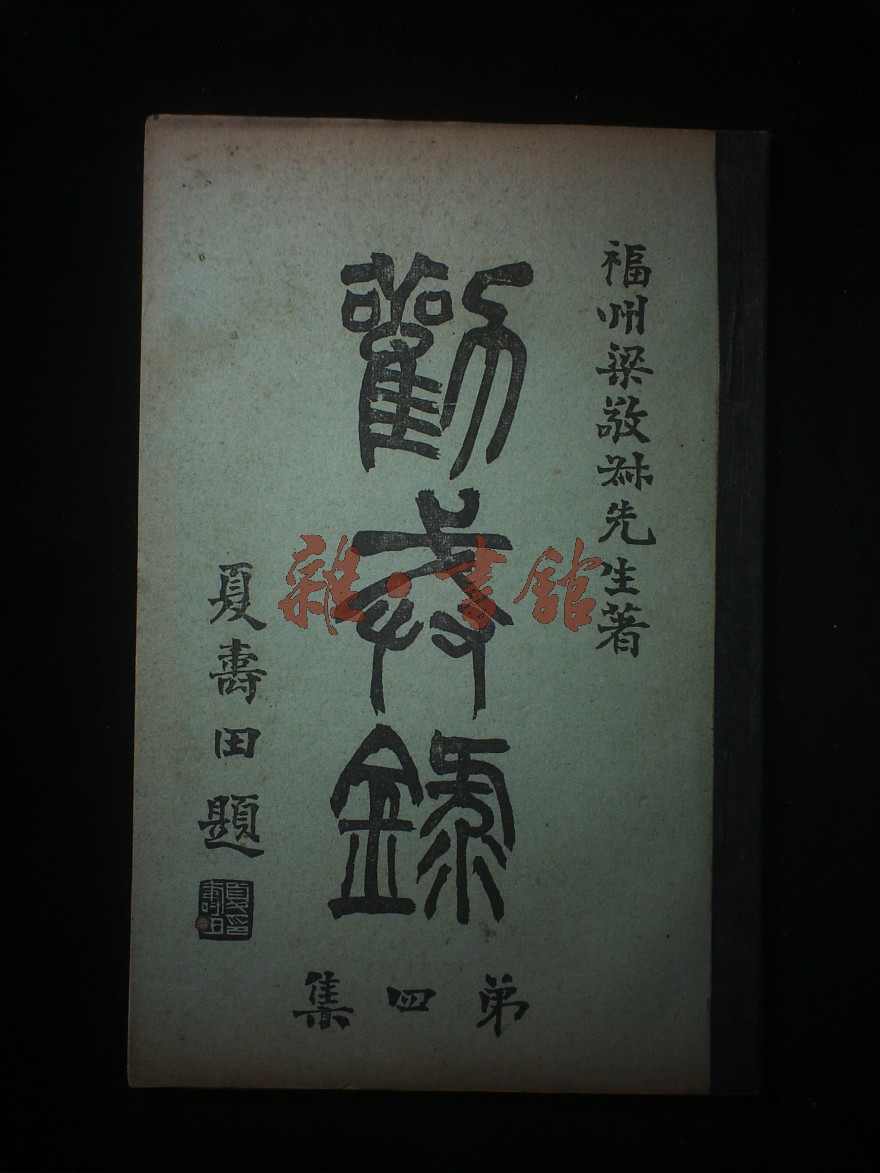 福州梁敬叔先生著
勸戒錄
弟四集
夏壽田題
夏印壽田
雜·書館